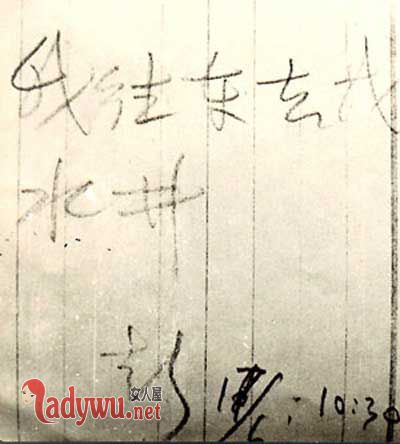 我往东去找
水井
彭 10:30
女人屋
ladywu.net